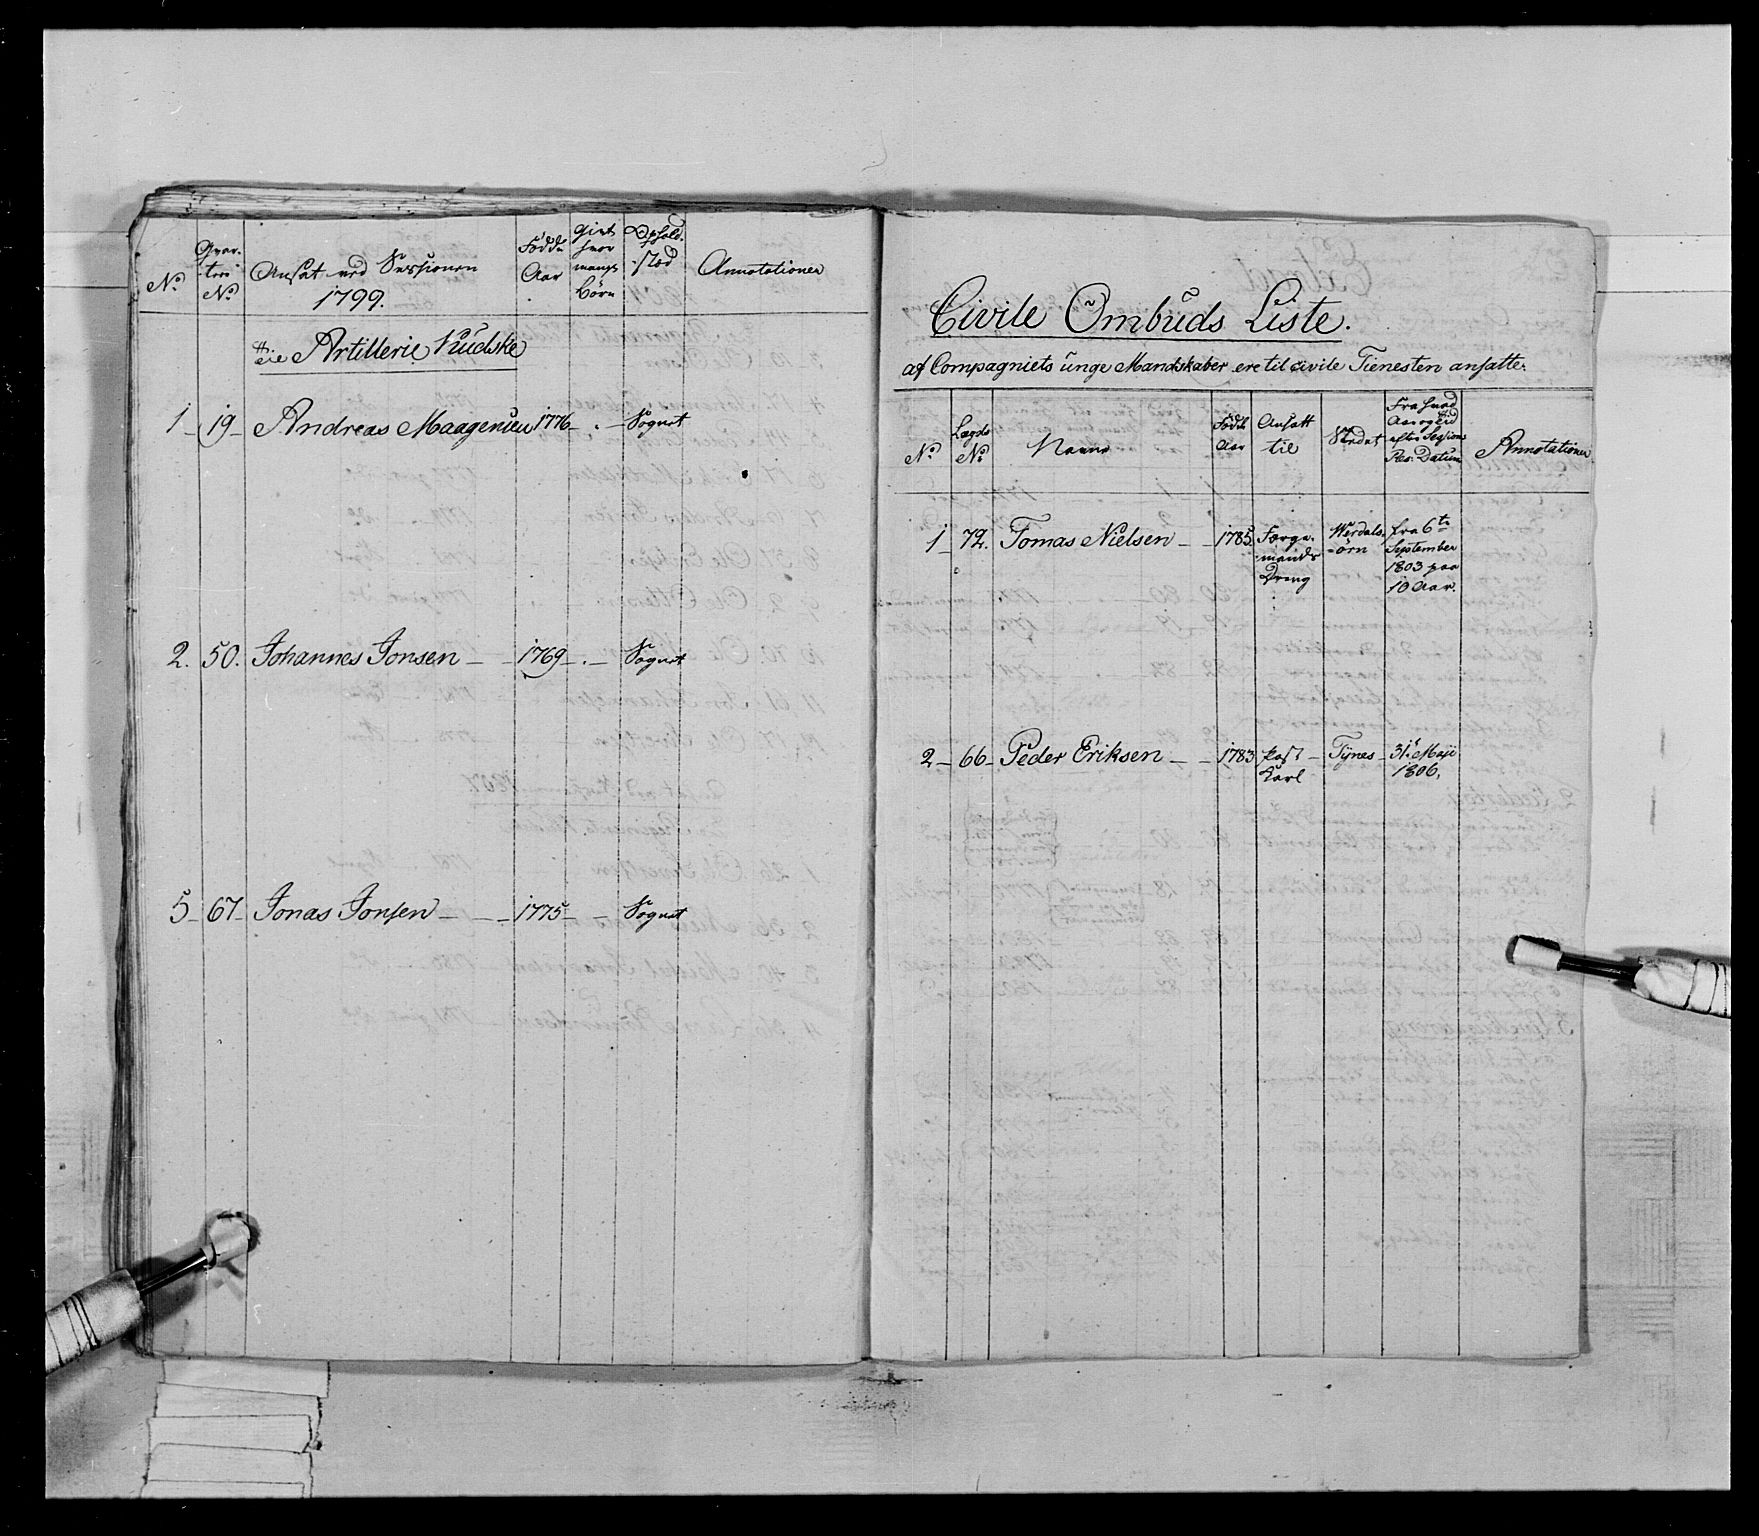 No.
Qvar-
teer
No.
Ansat ved Sessionen
1799.
Fødde
Aar
Givt
hvor
mange
Børn
Ophold-
stæd
Annotationer
Artillerie Kudske
1 19 Andreas Maagensen 1776 Sognet
2. 50. Johannes Jonsen 1769 Sognet
5 67 Jonas Jonsen 1775 Sognet
Civile Ombuds Liste.
af Compagniets unge Mandskaber ere til civile Tienesten ansatte:
No.
Lægds
No.
Navne
Fødde
Aar
Ansatt
til
Stædet
Fra hvad
Aar og tid
efter Sessions
Res: Datum
Annotationer
1 72. Tomas Nielsen 1785 Færge-
mands
Dreng
Værdals-
ørn
fra 6te
September
1803 paa
10 Aar.
2 66 Peder Eriksen 1783 Post
Karl
Tynes
31. Maji
1806.